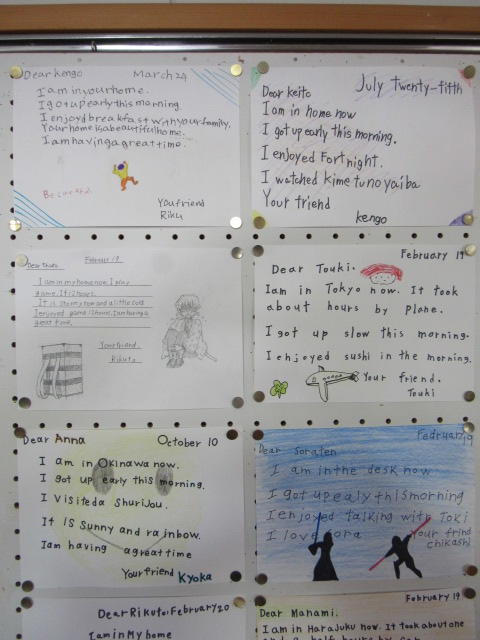 Dear Kengo March 24
I am in your home.
I got up early this morning.
I enjoyed breakfast with your family.
Your home is a beautiful home.
I am having a great time.
You friend
Riku
Dear keito July twenty-fifth
I am in home now
I got up early this morning.
I enjoyed Fortnight.
I watched kimetunoyaiba
Your friend
kengo
February 19
I am in my home now. I play
game. It 12 hours.
It is stormy now and a little cold
I enjoyed game 12 hours. I am having a
great time.
Your friend.
Rikuto
February 19
Dear Touki.
I am in Tokyo now. It took
about hours by plane.
I got up slow this morning.
I enjoyed sushi in the morning.
Your friend.
Touki
Dear Anna October 10
I am in Okinawa now.
I got up early this morning.
I visiteda shurijou.
It is sunny and rainbow.
I am having a great time
Your friend Kyoka
February 19
Dear Soraten
I am in the desk now
I got up ealy this morning
I enjoyed talking with Toki
I love sora
Your frind
chikashi
Dear Rikuto. February 20
I am in My home
February 19
Dear Manami.
I am in Harajuku now. It took about one